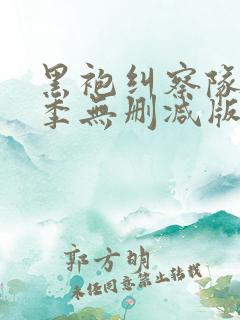 黑袍纠察队
季無删减版
郭方明
未经同意禁止转载